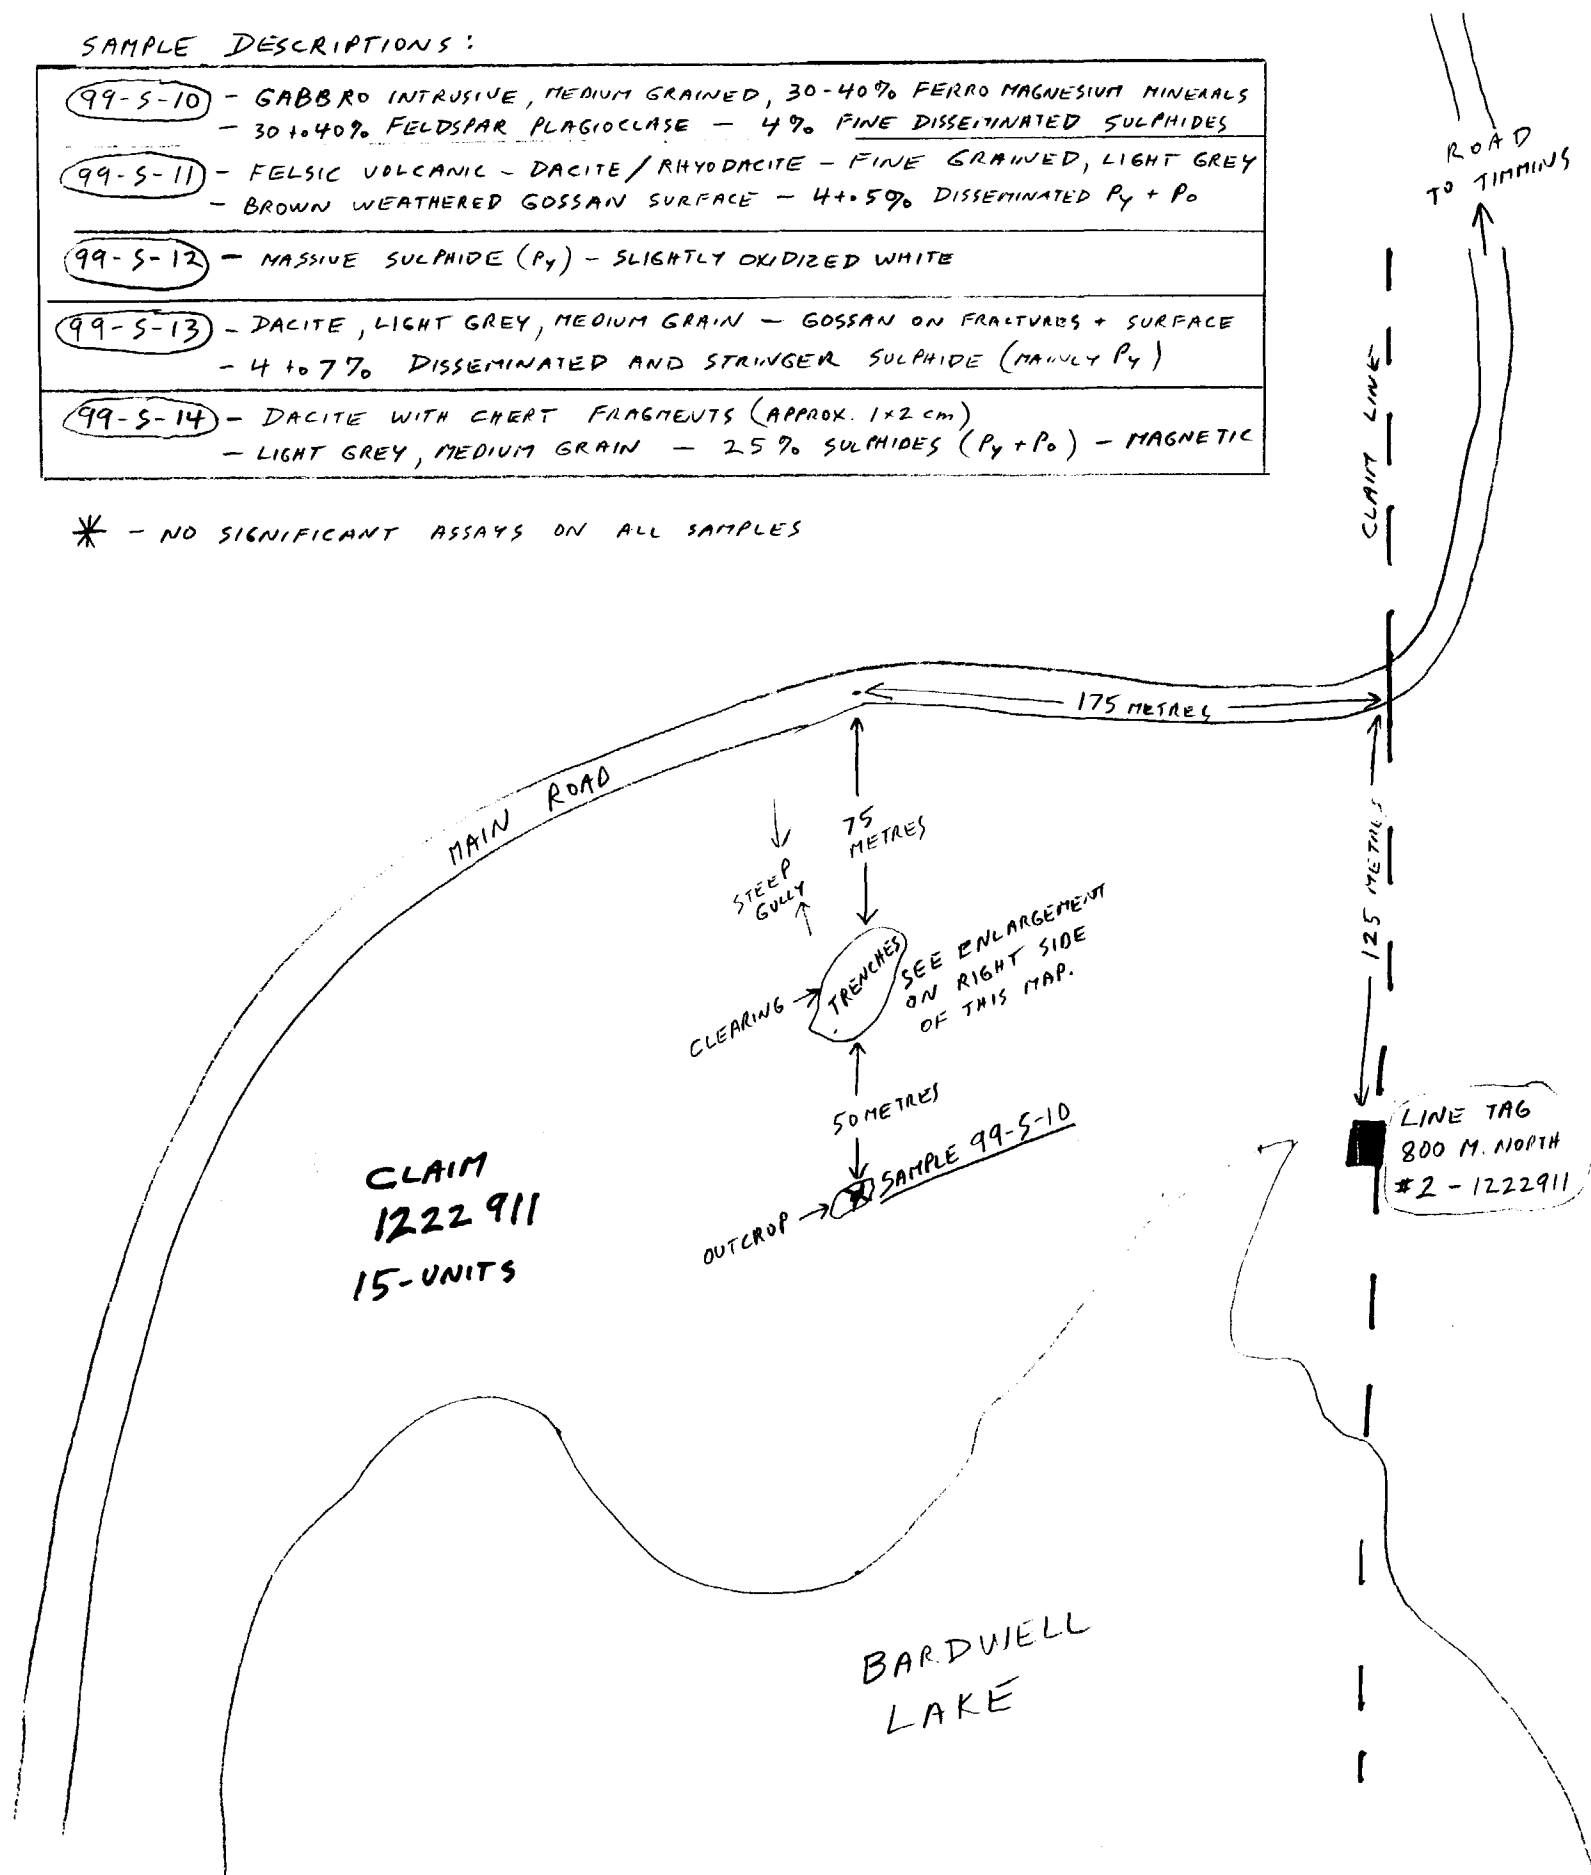 SAMPLE DESCRIPTIONS:
99-S-10 - GABBRO INTRUSIVE, MEDIUM GRAINED, 30-40% FERRO MAGNESIUM MINERALS
- 30 to 40% FELDSPAR PLAGIOCLASE - 4% FINE DISSEMINATED SULPHIDES
99-S-11 - FELSIC VOLCANIC - DACITE/RHYODACITE - FINE GRAINED, LIGHT GREY
- BROWN WEATHERED GOSSAN SURFACE - 4 to 5% DISSEMINATED Py + Po
99-S-12 - MASSIVE SULPHIDE (Py) - SLIGHTLY OXIDIZED WHITE
99-S-13 - DACITE, LIGHT GREY, MEDIUM GRAIN - GOSSAN ON FRACTURES + SURFACE
- 4 to 7% DISSEMINATED AND STRINGER SULPHIDE (MAINLY Py)
99-S-14 - DACITE WITH CHERT FRAGMENTS (APPROX. 1x2 cm)
- LIGHT GREY, MEDIUM GRAIN - 25% SULPHIDES (Py + Po) - MAGNETIC
* - NO SIGNIFICANT ASSAYS ON ALL SAMPLES
ROAD
TO TIMMINS
CLAIM LINE
175 METRES
MAIN ROAD
75
METRES
STEEP
GULLY
125 METRES
TRENCHES
SEE ENLARGEMENT
ON RIGHT SIDE
OF THIS MAP.
CLEARING
50 METRES
SAMPLE 99-S-10
OUTCROP
LINE TAG
800 M. NORTH
#2 - 1222911
CLAIM
1222911
15-UNITS
BARDWELL
LAKE